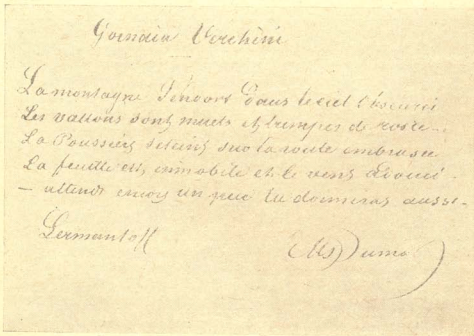 Gornaia Verchini
La montagne s'endort dans le ciel obscurci
Les vallons sont muets et trempés de rosée
La Poussière s'éteint sur la route embrasée
La feuille est immobile et le vent adouci
— attends encor un peu tu dormiras aussi —
Lermontoff
Alex Dumas